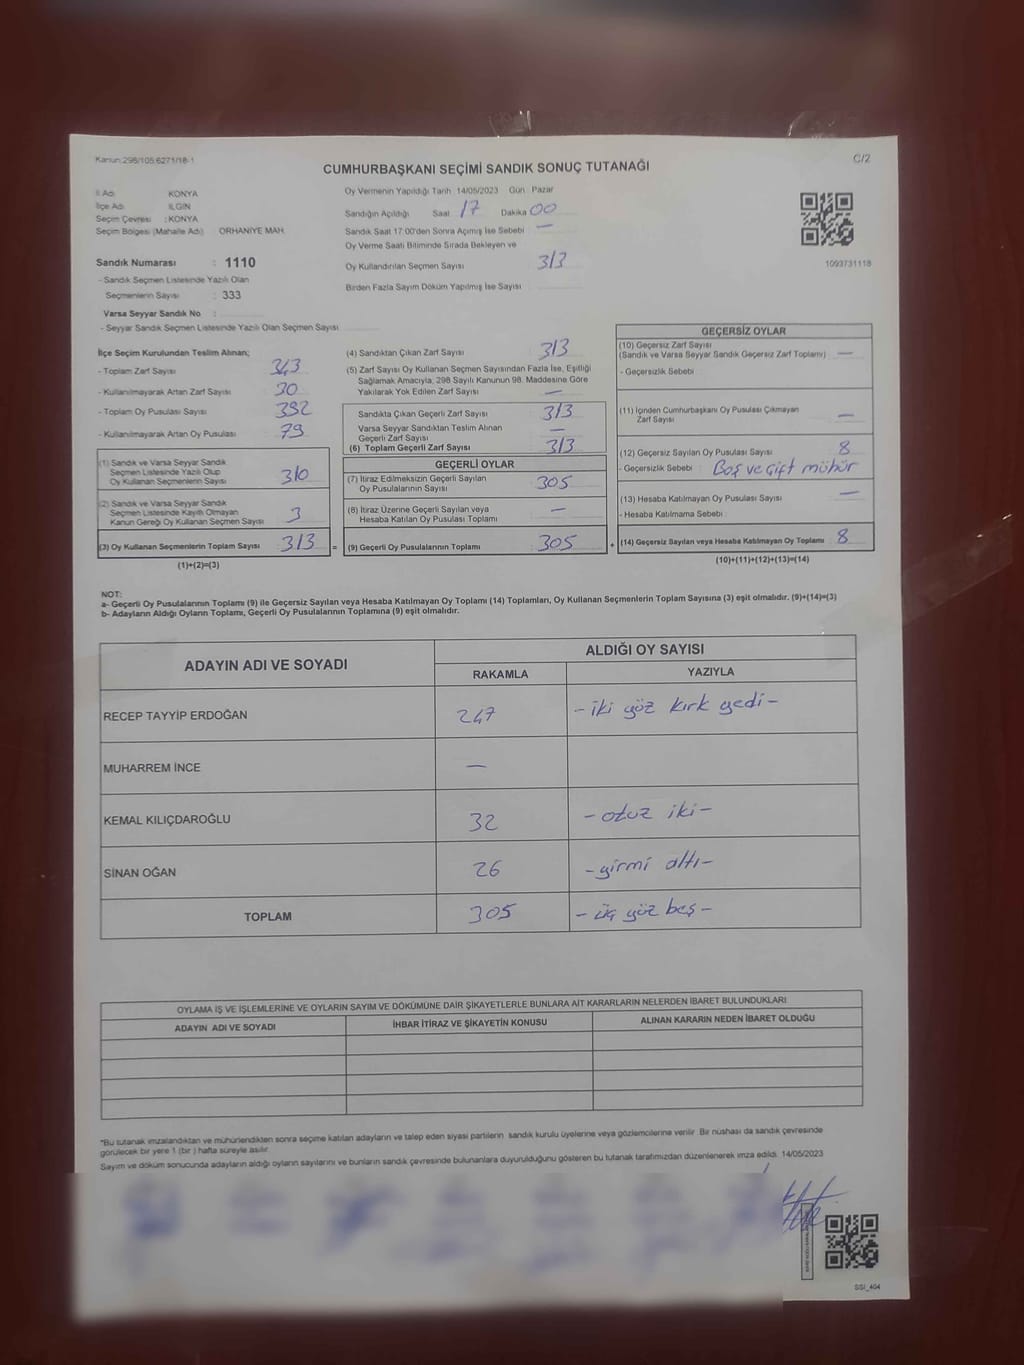 Kanun:298/105;6271/18-1
C/2
CUMHURBAŞKANI SEÇİMİ SANDIK SONUÇ TUTANAĞI
İl Adı : KONYA
İlçe Adı : ILGIN
Seçim Çevresi : KONYA
Seçim Bölgesi (Mahalle Adı) : ORHANİYE MAH.
Sandık Numarası : 1110
- Sandık Seçmen Listesinde Yazılı Olan
Seçmenlerin Sayısı : 333
Varsa Seyyar Sandık No :
- Seyyar Sandık Seçmen Listesinde Yazılı Olan Seçmen Sayısı
Oy Vermenin Yapıldığı Tarih 14/05/2023 Gün : Pazar
Sandığın Açıldığı Saat 17 Dakika 00
Sandık Saat 17:00'den Sonra Açımış İse Sebebi —
Oy Verme Saati Bitiminde Sırada Bekleyen ve
Oy Kullandırılan Seçmen Sayısı 313
Birden Fazla Sayım Döküm Yapılmış İse Sayısı
1093731118
İlçe Seçim Kurulundan Teslim Alınan;
- Toplam Zarf Sayısı 343
- Kullanılmayarak Artan Zarf Sayısı 30
- Toplam Oy Pusulası Sayısı 392
- Kullanılmayarak Artan Oy Pusulası 79
(1) Sandık ve Varsa Seyyar Sandık
Seçmen Listesinde Yazılı Olup
Oy Kullanan Seçmenlerin Sayısı 310
(2) Sandık ve Varsa Seyyar Sandık
Seçmen Listesinde Kayıtlı Olmayan
Kanun Gereği Oy Kullanan Seçmen Sayısı 3
(3) Oy Kullanan Seçmenlerin Toplam Sayısı 313 =
(1)+(2)=(3)
(4) Sandıktan Çıkan Zarf Sayısı 313
(5) Zarf Sayısı Oy Kullanan Seçmen Sayısından Fazla İse, Eşitliği
Sağlamak Amacıyla, 298 Sayılı Kanunun 98. Maddesine Göre
Yakılarak Yok Edilen Zarf Sayısı —
Sandıkta Çıkan Geçerli Zarf Sayısı 313
Varsa Seyyar Sandıktan Teslim Alınan
Geçerli Zarf Sayısı —
(6) Toplam Geçerli Zarf Sayısı 313
GEÇERLİ OYLAR
(7) İtiraz Edilmeksizin Geçerli Sayılan
Oy Pusulalarının Sayısı 305
(8) İtiraz Üzerine Geçerli Sayılan veya
Hesaba Katılan Oy Pusulası Toplamı —
(9) Geçerli Oy Pusulalarının Toplamı 305 +
GEÇERSİZ OYLAR
(10) Geçersiz Zarf Sayısı
(Sandık ve Varsa Seyyar Sandık Geçersiz Zarf Toplamı) —
- Geçersizlik Sebebi :
(11) İçinden Cumhurbaşkanı Oy Pusulası Çıkmayan
Zarf Sayısı —
(12) Geçersiz Sayılan Oy Pusulası Sayısı 8
- Geçersizlik Sebebi : Boş ve çift mühür
(13) Hesaba Katılmayan Oy Pusulası Sayısı —
- Hesaba Katılmama Sebebi :
(14) Geçersiz Sayılan veya Hesaba Katılmayan Oy Toplamı 8
(10)+(11)+(12)+(13)=(14)
NOT:
a- Geçerli Oy Pusulalarının Toplamı (9) ile Geçersiz Sayılan veya Hesaba Katılmayan Oy Toplamı (14) Toplamları, Oy Kullanan Seçmenlerin Toplam Sayısına (3) eşit olmalıdır. (9)+(14)=(3)
b- Adayların Aldığı Oyların Toplamı, Geçerli Oy Pusulalarının Toplamına (9) eşit olmalıdır.
ADAYIN ADI VE SOYADI
ALDIĞI OY SAYISI
RAKAMLA YAZIYLA
RECEP TAYYİP ERDOĞAN 247 - iki yüz kırk yedi -
MUHARREM İNCE —
KEMAL KILIÇDAROĞLU 32 - otuz iki -
SİNAN OĞAN 26 - yirmi altı -
TOPLAM 305 - üç yüz beş -
OYLAMA İŞ VE İŞLEMLERİNE VE OYLARIN SAYIM VE DÖKÜMÜNE DAİR ŞİKAYETLERLE BUNLARA AİT KARARLARIN NELERDEN İBARET BULUNDUKLARI
ADAYIN ADI VE SOYADI İHBAR İTİRAZ VE ŞİKAYETİN KONUSU ALINAN KARARIN NEDEN İBARET OLDUĞU
*Bu tutanak imzalandıktan ve mühürlendikten sonra seçime katılan adayların ve talep eden siyasi partilerin sandık kurulu üyelerine veya gözlemcilerine verilir. Bir nüshası da sandık çevresinde
görülecek bir yere 1 (bir) hafta süreyle asılır.
Sayım ve döküm sonucunda adayların aldığı oyların sayılarını ve bunların sandık çevresinde bulunanlara duyurulduğunu gösteren bu tutanak tarafımızdan düzenlenerek imza edildi. 14/05/2023
SSI_404